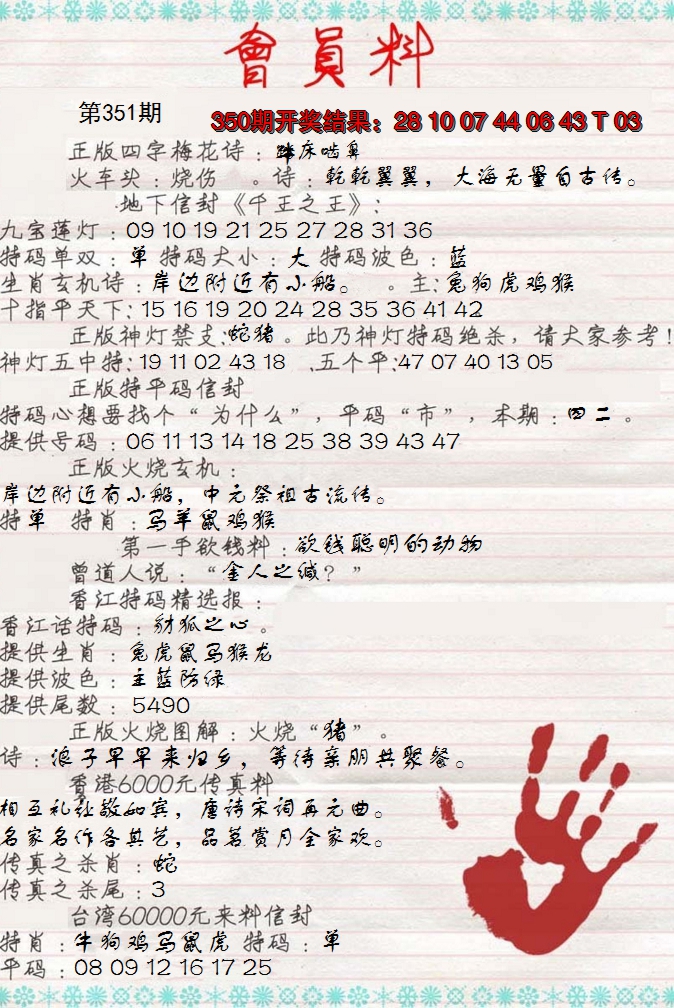 會員料
第351期
350期开奖结果：28 10 07 44 06 43 T 03
正版四字梅花诗：床啮鼻
火车头：烧伤 。诗：乾乾翼翼，大海无量自古传。
地下信封《千王之王》：
九宝莲灯：09 10 19 21 25 27 28 31 36
特码单双：单 特码大小：大 特码波色：蓝
生肖玄机诗：岸边附近有小船。 。主：兔狗虎鸡猴
十指平天下：15 16 19 20 24 28 35 36 41 42
正版神灯禁支：蛇猪。此乃神灯特码绝杀，请大家参考！
神灯五中特：19 11 02 43 18 .五个平：47 07 40 13 05
正版特平码信封
特码心想要找个“为什么”，平码“市”，本期：四二。
提供号码：06 11 13 14 18 25 38 39 43 47
正版火烧玄机：
岸边附近有小船，中元祭祖古流传。
特单 特肖：马羊鼠鸡猴
第一手欲钱料：欲钱聪明的动物
曾道人说：“金人之缄？”
香江特码精选报：
香江话特码：豺狐之心。
提供生肖：兔虎鼠马猴龙
提供波色：主蓝防绿
提供尾数：5490
正版火烧图解：火烧“猪”。
诗：浪子早早来归乡，等待亲朋共聚餐。
香港6000元传真料
相互礼敬如宾，唐诗宋词再元曲。
名家名作各其艺，品茗赏月全家欢。
传真之杀肖：蛇
传真之杀尾：3
台湾60000元来料信封
特肖：牛狗鸡马鼠虎 特码：单
平码：08 09 12 16 17 25